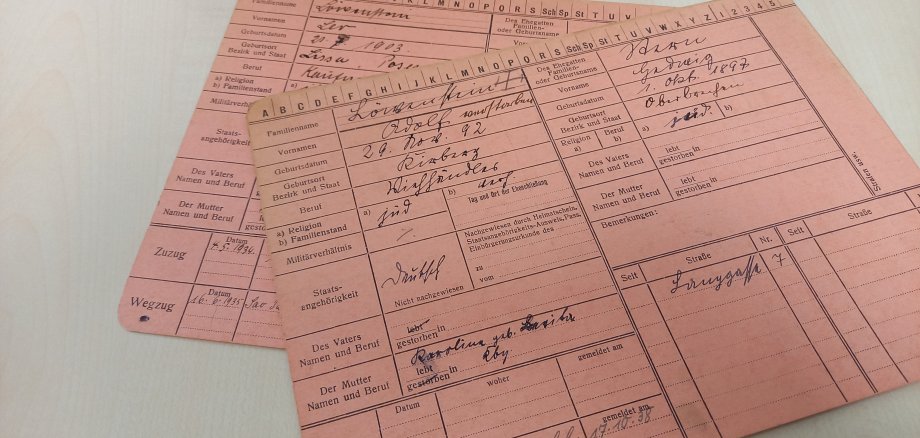 Familienname Löwenstein
Vornamen Leo
Geburtsdatum 1903.
Geburtsort
Bezirk und Staat Lissa Posen
Beruf
a) Religion
b) Familienstand
Militärverhältnis
Staats-
angehörigkeit
Des Vaters
Namen und Beruf
Der Mutter
Namen und Beruf
Zuzug Datum
Wegzug Datum
1935
Des Ehegatten
Familien-
oder Geburtsname
A B C D E F G H I J K L M N O P Q R S Sch Sp St T U V W X Y Z 1 2 3 4 5
Familienname Löwenstein
Vornamen Adolf
Geburtsdatum 29. Nov. 92
Geburtsort
Bezirk und Staat Kirberg
Beruf Viehhändler
a) Religion
b) Familienstand a) jüd b) verh.
Tag und Ort der Eheschließung
Militärverhältnis
Staats-
angehörigkeit Deutsch
Nicht nachgewiesen
Nachgewiesen durch Heimatschein,
Staatsangehörigkeits-Ausweis, Pass,
Einbürgerungsurkunde des
zu
vom
Des Vaters
Namen und Beruf
lebt
gestorben in
Der Mutter
Namen und Beruf Karolina geb.
lebt
gestorben in
Datum woher gemeldet am
gemeldet am
17.10.38
Des Ehegatten
Familien-
oder Geburtsname Stern
Vorname Hedwig
Geburtsdatum 1. Okt. 1897
Geburtsort
Bezirk und Staat Oberbrechen
Religion Beruf
a) b) a) jüd. b)
Des Vaters
Namen und Beruf
lebt
gestorben in
Der Mutter
Namen und Beruf
lebt
gestorben in
Bemerkungen:
Straßen usw.
Seit Straße Nr. Seit Straße
Langgasse 7